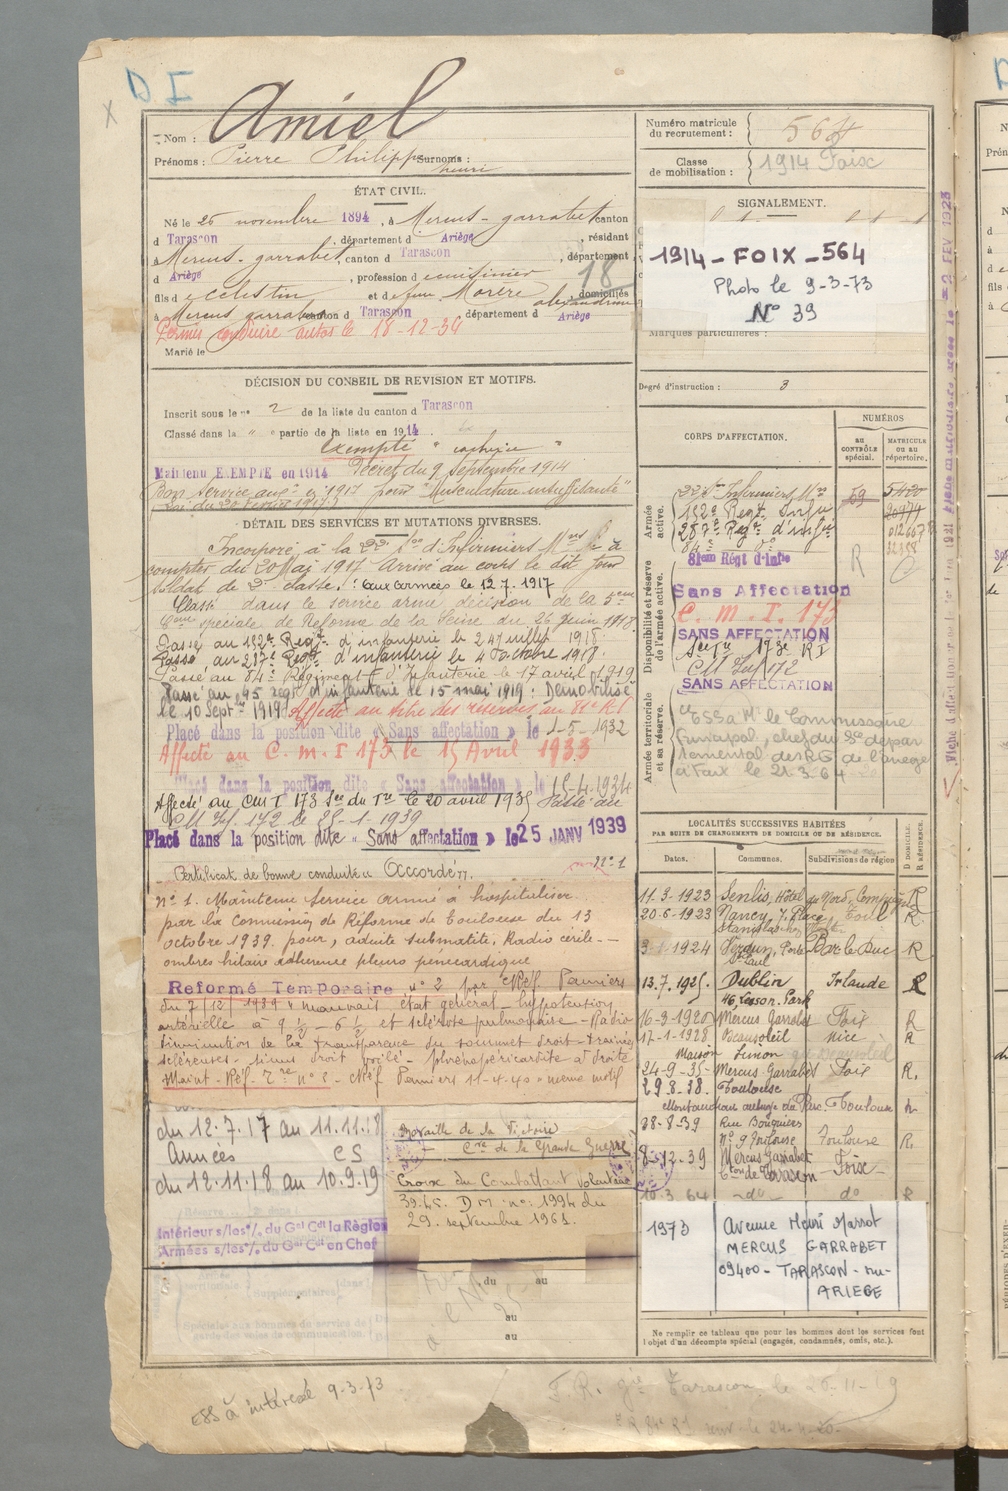 D I
Nom : Amiel
Prénoms : Pierre Philippe Surnoms :
henri
ÉTAT CIVIL.
Né le 26 novembre 1894, à Mercus-garrabet canton
d Tarascon, département d Ariège, résidant
à Mercus-garrabet, canton d Tarascon, département
d Ariège, profession de cuisinier
18
fils de Celestin et de feue Morère alexandrine domiciliés
à Mercus garrabet canton d Tarascon département d Ariège
Permis conduire autos le 18-12-34
Marié le
DÉCISION DU CONSEIL DE REVISION ET MOTIFS.
Inscrit sous le n° 2 de la liste du canton d Tarascon
Classé dans la " e partie de la liste en 1914
Exempté "
Maintenu EXEMPTÉ en 1914 Décret du 9 Septembre 1914
Bon service en 1917 pour "Musculature insuffisante"
Loi du 20 février 1917
DÉTAIL DES SERVICES ET MUTATIONS DIVERSES.
Incorporé à la 22e Son d'Infirmiers Mres à
compter du 20 Mai 1917 Arrivé au corps le dit jour
soldat de 2e classe. aux armées le 12.7.1917
Classé dans le service armé décision de la 5eme
Come spéciale de Reforme de la Seine du 26 juin 1918
Passé au 132e Regt d'infanterie le 24 juillet 1918.
Passé au 287e Regt d'infanterie le 4 octobre 1918.
Passé au 84e Régiment d'Infanterie le 17 avril 1919
Passé au 95 regt d'infanterie le 15 mai 1919 : Démobilisé
le 10 Septbre 1919 Affecté au titre des réserves au 81e R I
Placé dans la position dite « Sans affectation » le 1-5-1932
Affecté au C. M. I 173 le 15 Avril 1933
Placé dans la position dite « Sans affectation » le 15-4-1934
Affecté au CM I 173 le 20 avril 1935 Passé au
CM Inf. 172 le 25-1-1939
Placé dans la position dite « Sans affectation » le 25 JANV 1939
n° 1
Certificat de bonne conduite « Accordé »
n° 1. Maintenu Service armé à hospitaliser
par la Commission de Réforme de Toulouse du 13
octobre 1939. pour, submatité, Radio
ombres hilaire adherence pleuro
Reformé Temporaire n° 2 par Réf. Pamiers
du 7/12/1939 « mauvais état général - hypotension
artérielle à 9 1/2 - 6 1/2 et sclérose pulmonaire - Radio
diminution de la transparence du sommet droit - trainées
scléreuses - sinus droit voilé - à droite
Maint - Réf. Tre n° 2 - Réf Pamiers 11-4-40 « même motif
du 12.7.17 au 11.11.18
Armées CS
du 12.11.18 au 10.9.19
Intérieur s/les % du Gal Cdt la Région
Armées s/les % du Gal Cdt en Chef
Médaille de la Victoire
+ Cve de la Grande Guerre
Croix du Combattant volontaire
39.45. DM n° : 1994 du
29. septembre 1961.
du au
au
au
Numéro matricule
du recrutement : 564
Classe
de mobilisation : 1914 Foix
SIGNALEMENT.
1914-FOIX-564
Photo le 9-3-73
N° 39
Marques particulières :
Degré d'instruction : 3
CORPS D'AFFECTATION.
NUMÉROS
au CONTRÔLE spécial.
MATRICULE ou au répertoire.
Armée active.
22e Son Infirmiers Mres 59 5420
132e Regt Infie
287e Regt d'infie
84e do
Disponibilité et réserve de l'armée active.
81ème Régt d'Infie R
Sans Affectation
C. M. I. 173
SANS AFFECTATION
173e R I
CM Inf 172
SANS AFFECTATION
Armée territoriale et sa réserve.
ESS à Mr le Commissaire
Principal, chef du Sce dépar
temental des RG de l'ariege
à Foix le 21.3.64
LOCALITÉS SUCCESSIVES HABITÉES
PAR SUITE DE CHANGEMENTS DE DOMICILE OU DE RÉSIDENCE.
Dates. Communes. Subdivisions de région D DOMICILE. R RÉSIDENCE.
11-3-1923 Senlis, Hôtel du Nord Compiègne R
20-6-1923 Nancy, 7, Place Toul R
Stanislas
3-1-1924 Verdun, Porte Bar le Duc R
St Paul
13.7.1925. Dublin Irlande R
46, Leeson. Park
16-3-1926 Mercus Garrabet Foix R
17-1-1928 Beausoleil nice R
Maison Simon
24-9-35 Mercus Garrabet Foix R.
29.8.38. Toulouse
Montaudran auberge du Parc. Toulouse
28-8-39 Rue Bouquieres
n° 9 Toulouse Toulouse R
8-12-39 Mercus Garrabet Foix
Cton de Tarascon
10-3 64 -do- do R
1973 Avenue Henri Marrot
MERCUS GARRABET
09400 - TARASCON - sur-
ARIEGE
Ne remplir ce tableau que pour les hommes dont les services font
l'objet d'un décompte spécial (engagés, condamnés, omis, etc.).
ESS à intéressé 9-3-73
F.R. gie Tarascon le 26-11-19